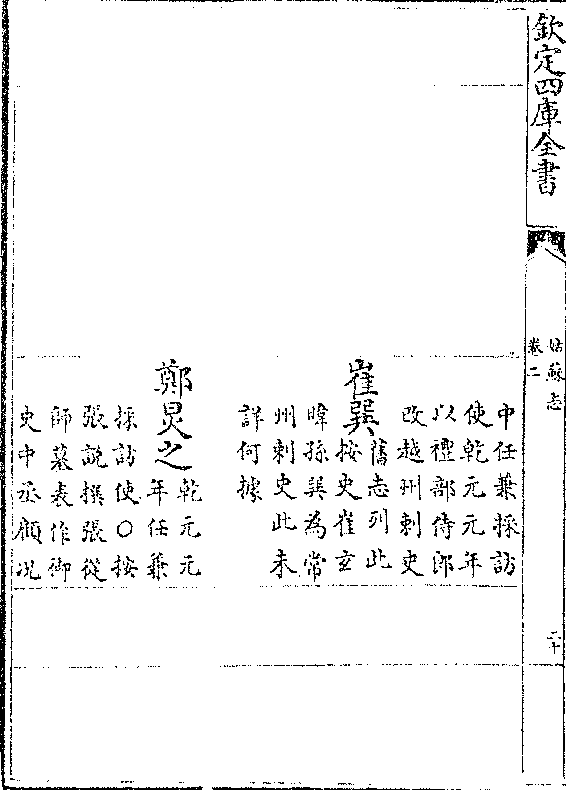 欽定四庫全書
姑蘇志
卷二
二十
中任兼採訪
使乾元元年
以禮部侍郎
改越州刺史
崔巽舊志列此
按史崔玄
暐孫巽為常
州刺史此未
詳何據
鄭炅之乾元元
年任兼
採訪使○按
張說撰張從
師墓表作御
史中丞顧況